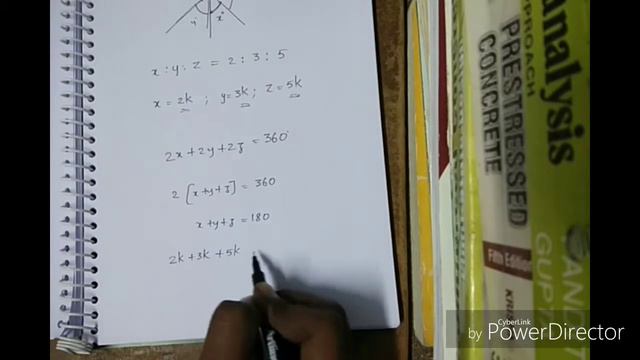 y° x°
x : y : z = 2 : 3 : 5
x = 2k ; y = 3k ; z = 5k
2x + 2y + 2z = 360°
2 [x+y+z] = 360
x+y+z = 180
2k + 3k + 5k
analysis
APPROACH
PRESTRESSED
CONCRETE
Fifth Edition
GUPTA
CyberLink
by PowerDirector